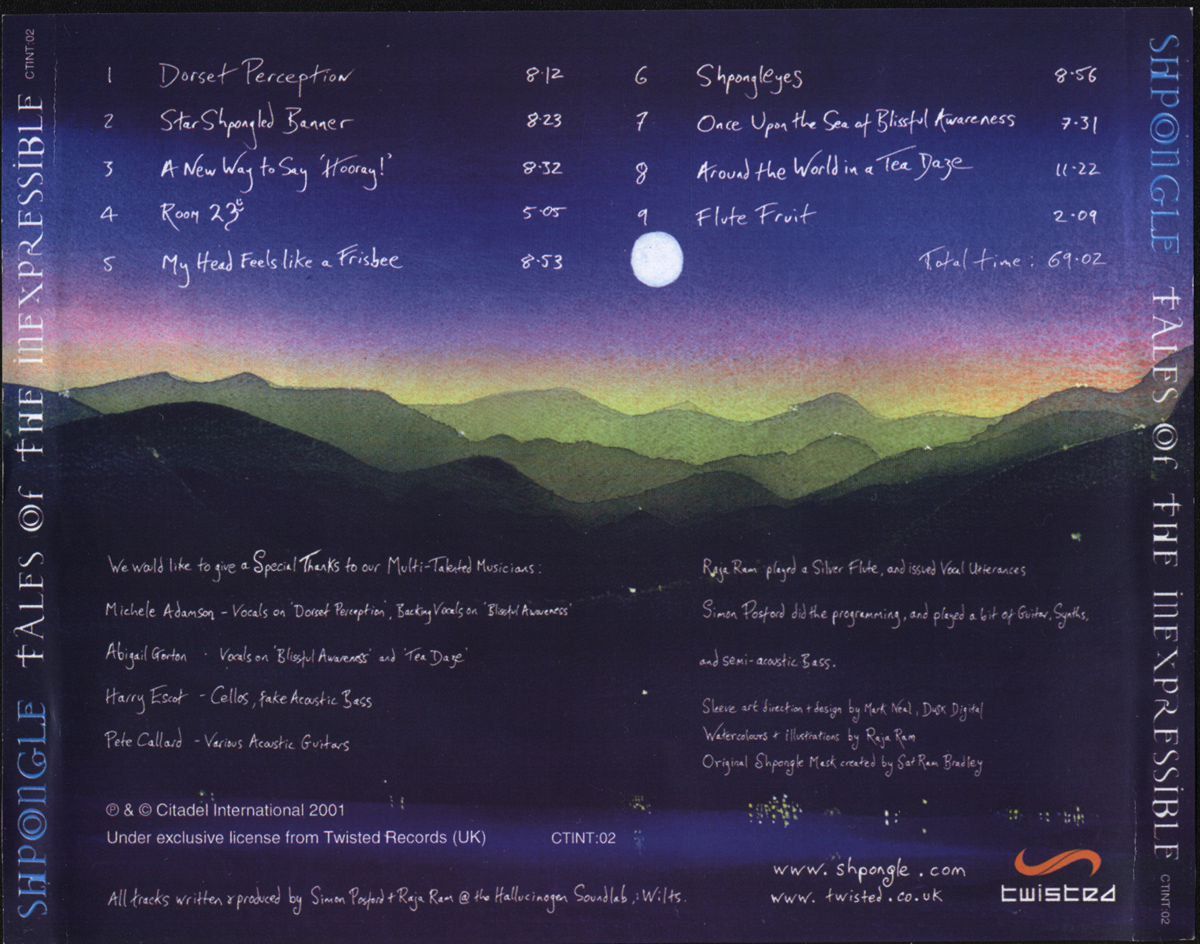 SHPONGLE TALES Of THE INEXPRESSIBLE CTINT:02
1 Dorset Perception 8·12
2 Star Shpongled Banner 8·23
3 A New Way to Say 'Hooray!' 8·32
4 Room 23 5·05
5 My Head Feels like a Frisbee 8·53
6 Shpongleyes 8·56
7 Once Upon the Sea of Blissful Awareness 7·31
8 Around the World in a Tea Daze 11·22
9 Flute Fruit 2·09
Total time: 69·02
We would like to give a Special Thanks to our Multi-Talented Musicians:
Michele Adamson - Vocals on 'Dorset Perception', Backing Vocals on 'Blissful Awareness'
Abigail Gorton · Vocals on 'Blissful Awareness' and 'Tea Daze'
Harry Escot - Cellos, fake Acoustic Bass
Pete Callard - Various Acoustic Guitars
Raja Ram played a Silver Flute, and issued Vocal Utterances
Simon Posford did the programming, and played a bit of Guitar, Synths,
and semi-acoustic Bass.
Sleeve art direction + design by Mark Neal, Dusk Digital
Watercolours + illustrations by Raja Ram
Original Shpongle Mask created by Sat Ram Bradley
℗ & © Citadel International 2001
Under exclusive license from Twisted Records (UK) CTINT:02
All tracks written & produced by Simon Posford + Raja Ram @ the Hallucinogen Soundlab, : Wilts.
www. shpongle . com
www. twisted . co.uk
twisted
SHPONGLE TALES Of THE INEXPRESSIBLE CTINT:02